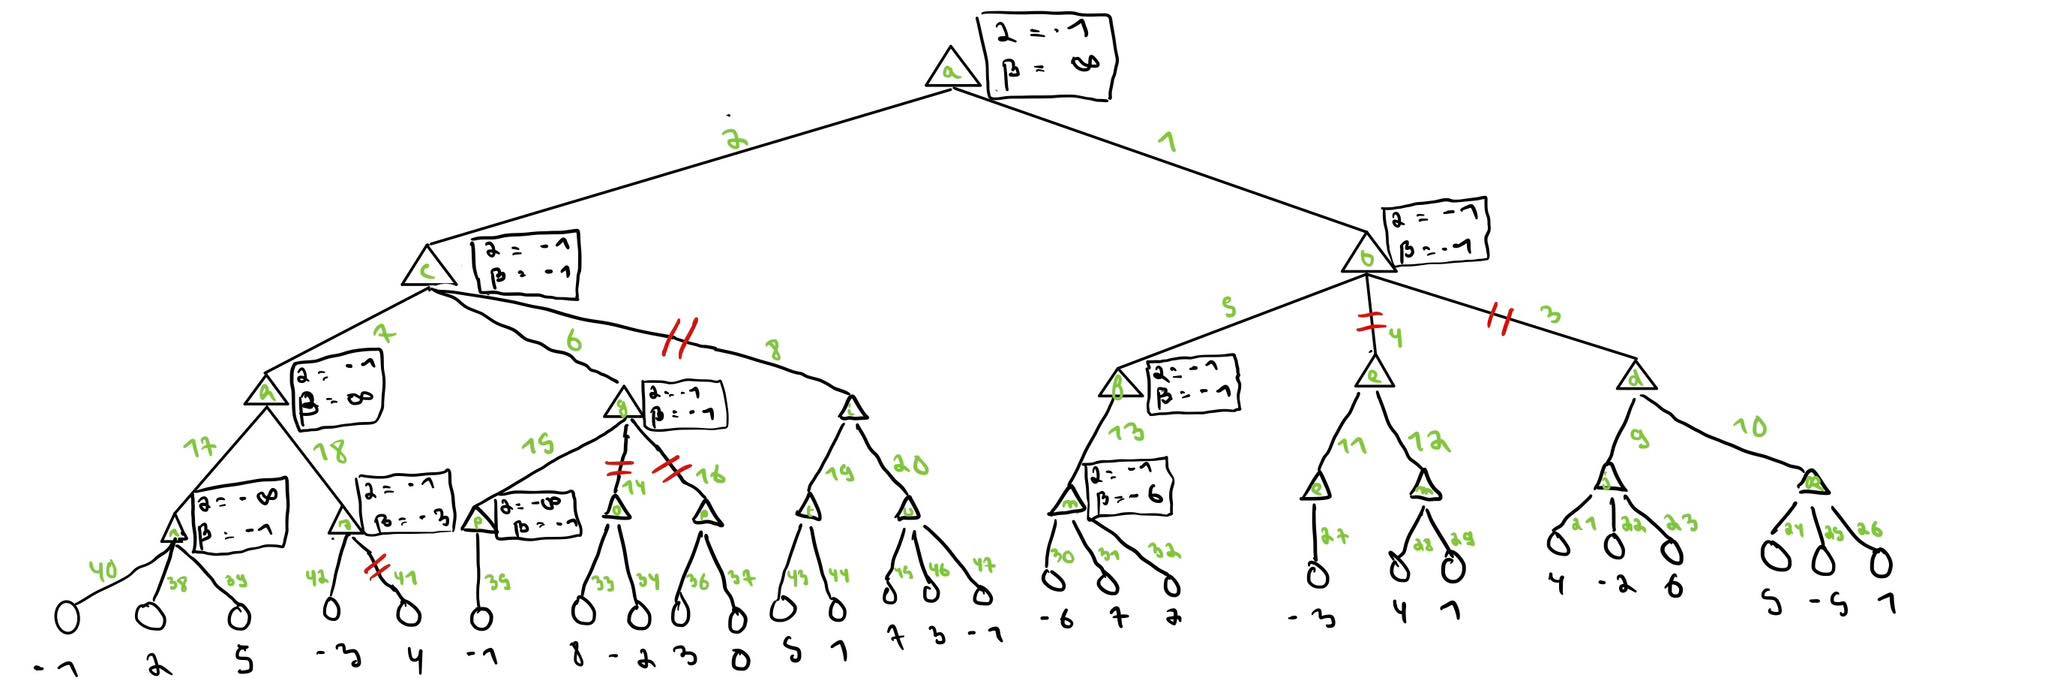 2 = -1
β = ∞
a
2
1
2 = -1
β = -1
c
2 = -1
β = -1
b
7
6
8
5
4
3
2 = -1
β = ∞
2 = -1
β = -1
g
i
2 = -1
β = -1
e
d
17
18
15
14
16
19
20
13
11
12
9
10
2 = -∞
β = -1
2 = -1
β = -3
2 = -∞
β = -1
2 = -1
β = -6
40
38
39
42
41
35
33
34
36
37
43
44
45
46
47
30
31
32
27
28
29
21
22
23
24
25
26
-1 2 5 -3 4 -1 8 -2 3 0 5 1 7 3 -1 -6 7 2 -3 4 1 4 -2 6 5 -5 1